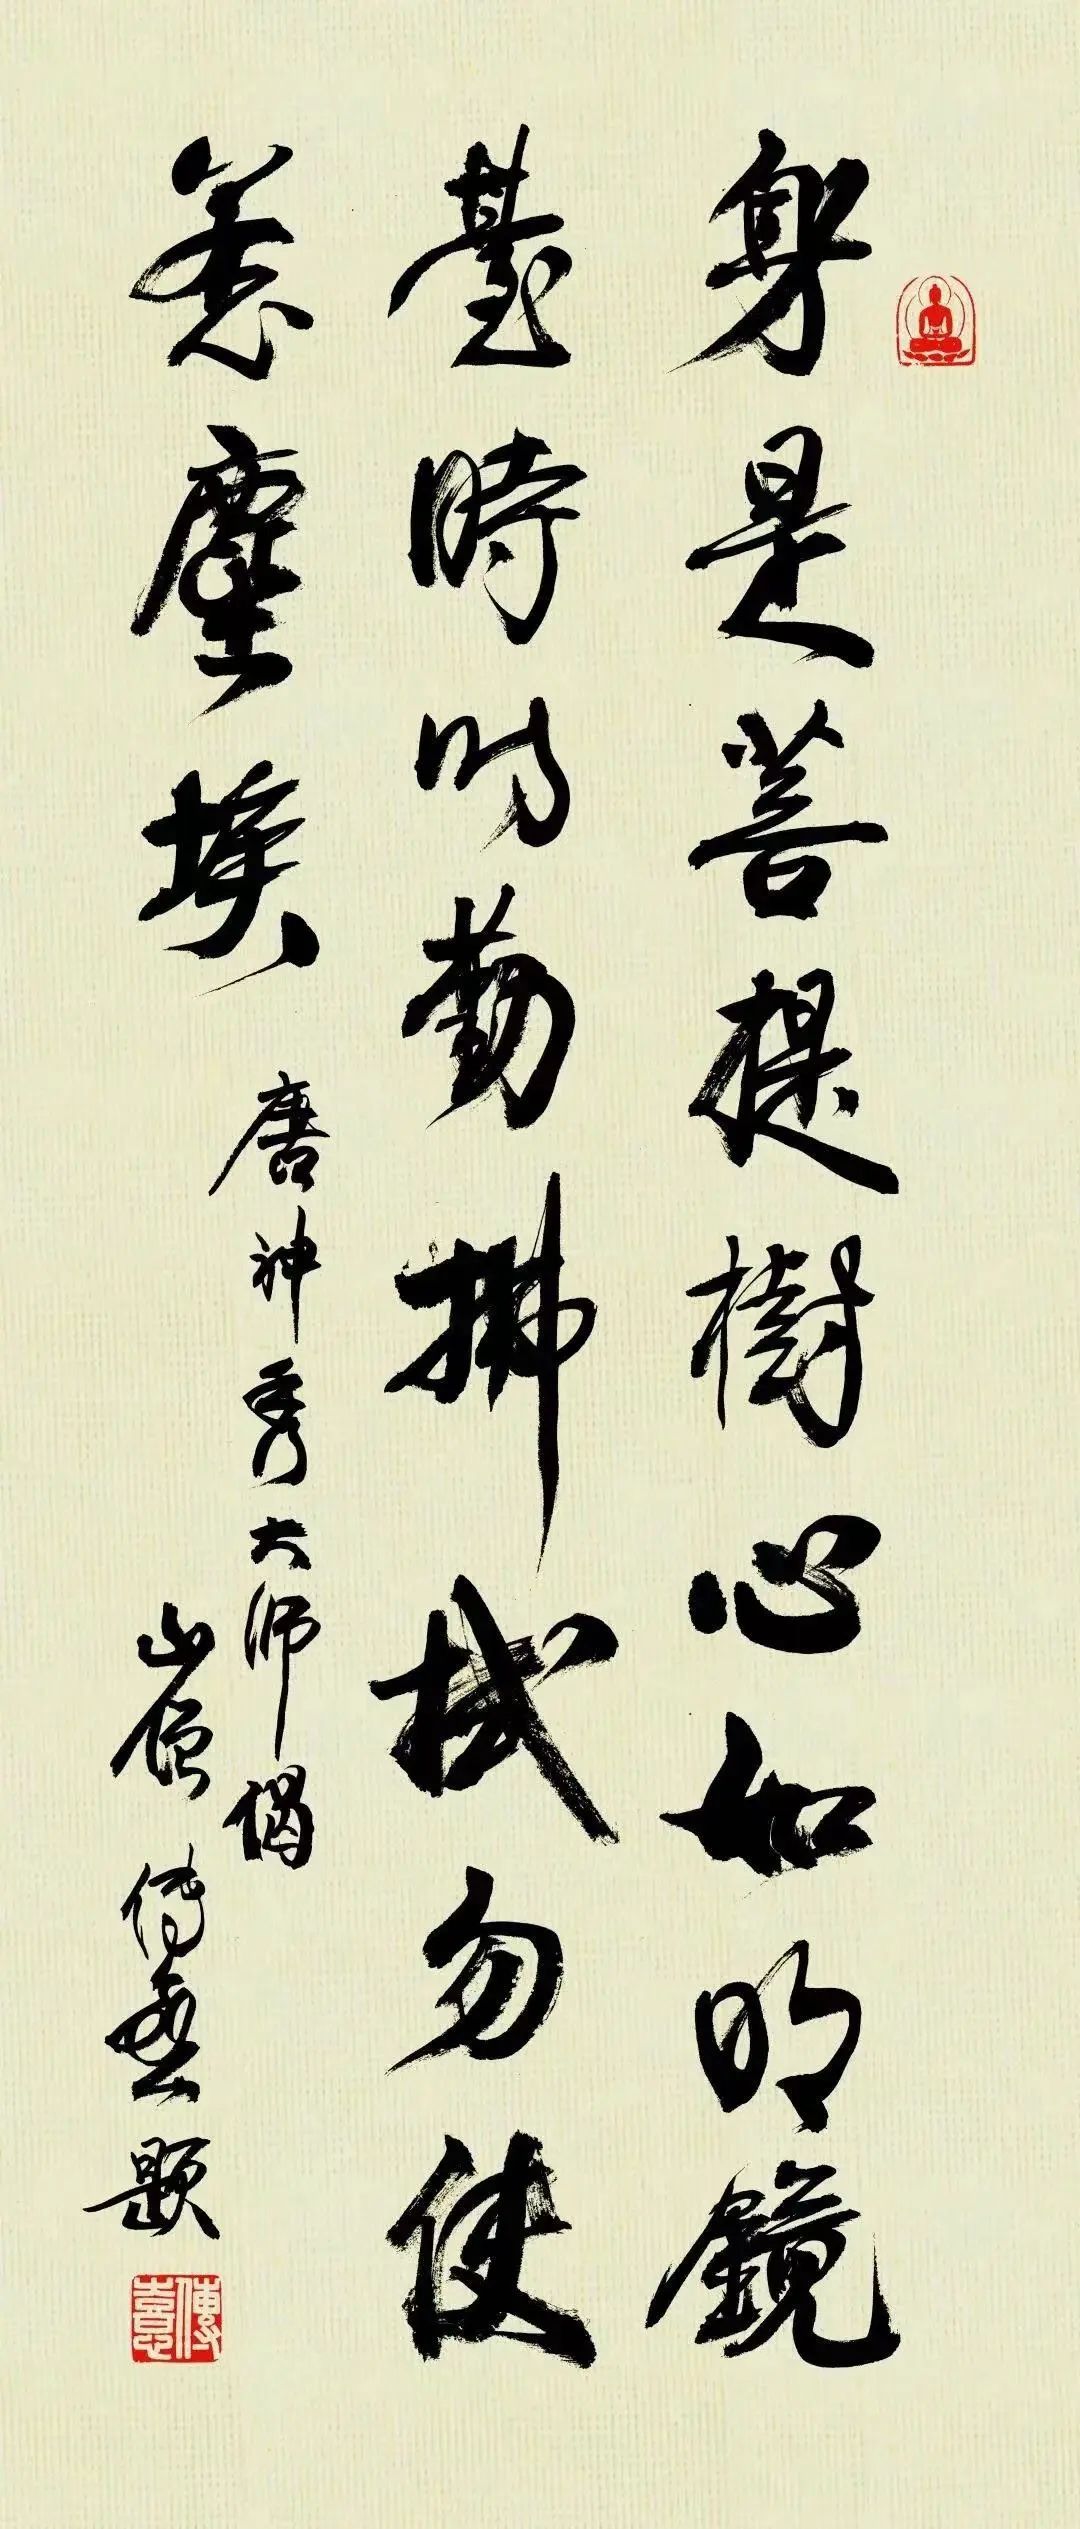 身是菩提樹心如明鏡
臺時時勤拂拭勿使
惹塵埃
唐神秀大师偈
山僧傳喜題
傳喜